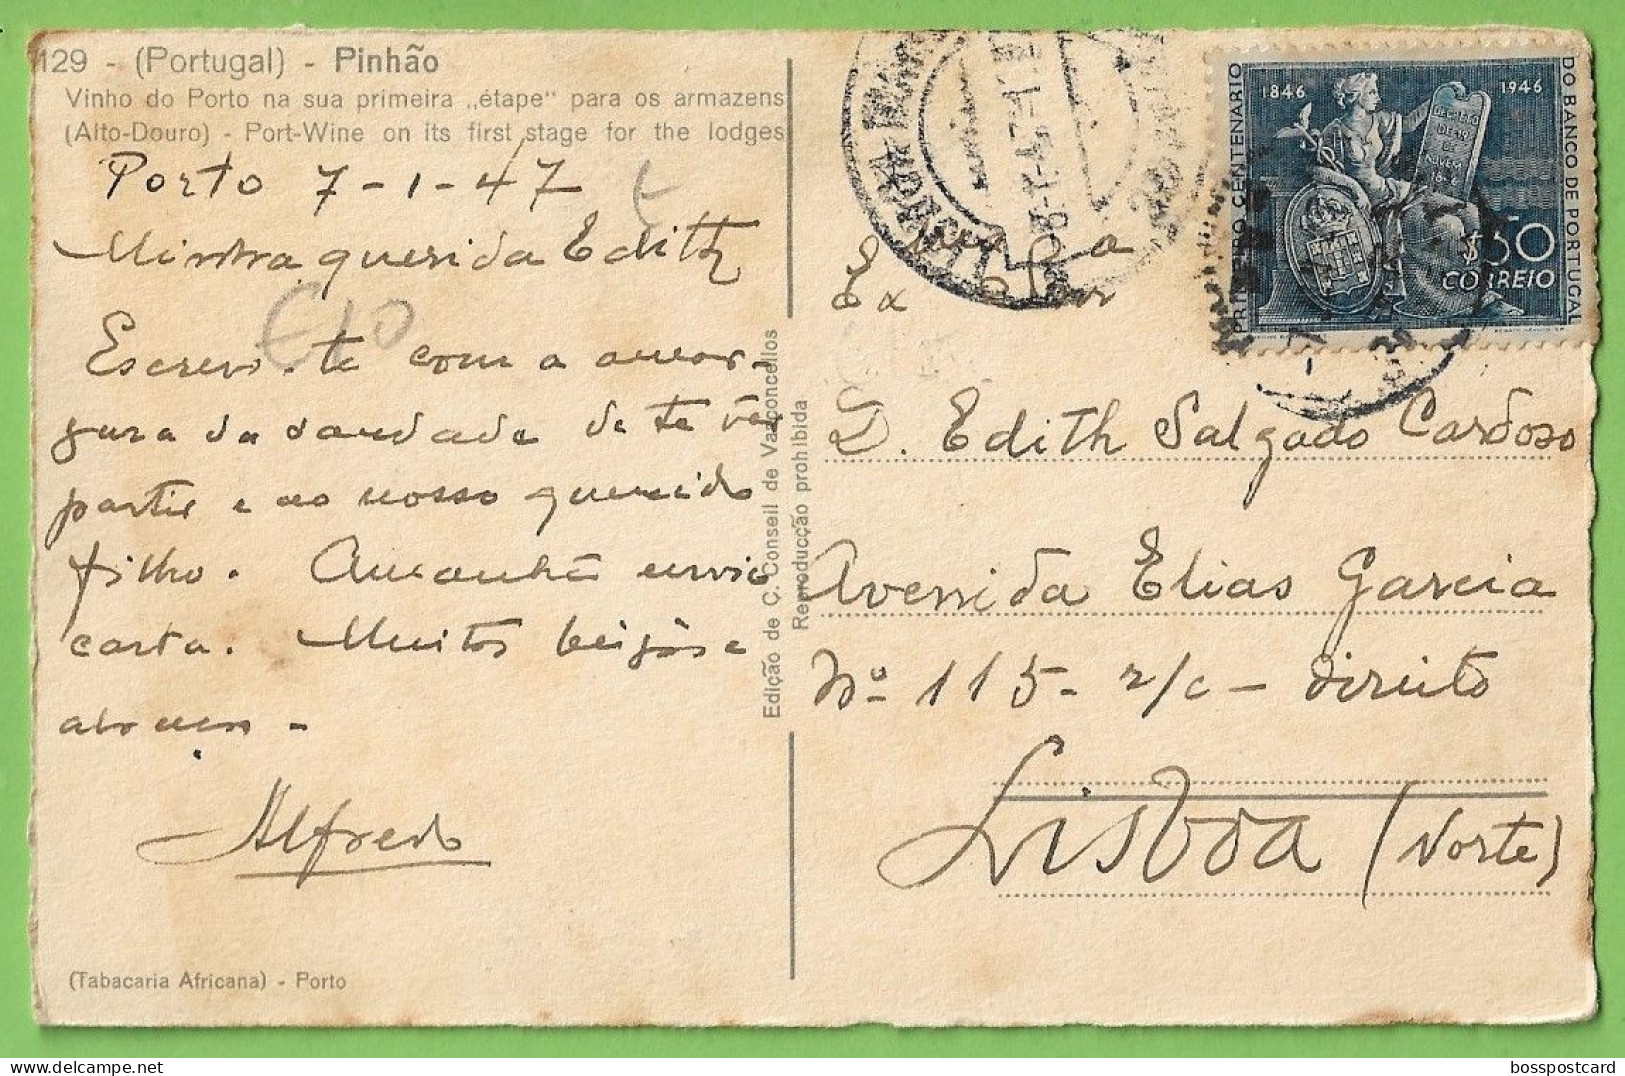 129 - (Portugal) - Pinhão
Vinho do Porto na sua primeira „étape" para os armazens
(Alto-Douro) - Port-Wine on its first stage for the lodges
Porto 7-1-47
Minha querida Edith
€10
Escrevo-te com a amar-
gura da saudade de te vêr
partir e ao nosso querido
filho. Amanhã envio
carta. Muitos beijos e
abraços -
Alfredo
(Tabacaria Africana) - Porto
Edição de C. Conseil de Vasconcellos
Reproducção prohibida
1846
1946
PRIMEIRO CENTENARIO
DO BANCO DE PORTUGAL
$50
CORREIO
Ex
D. Edith Salgado Cardoso
Avenida Elias Garcia
Nº 115- r/c - direito
Lisboa (Norte)
bosspostcard